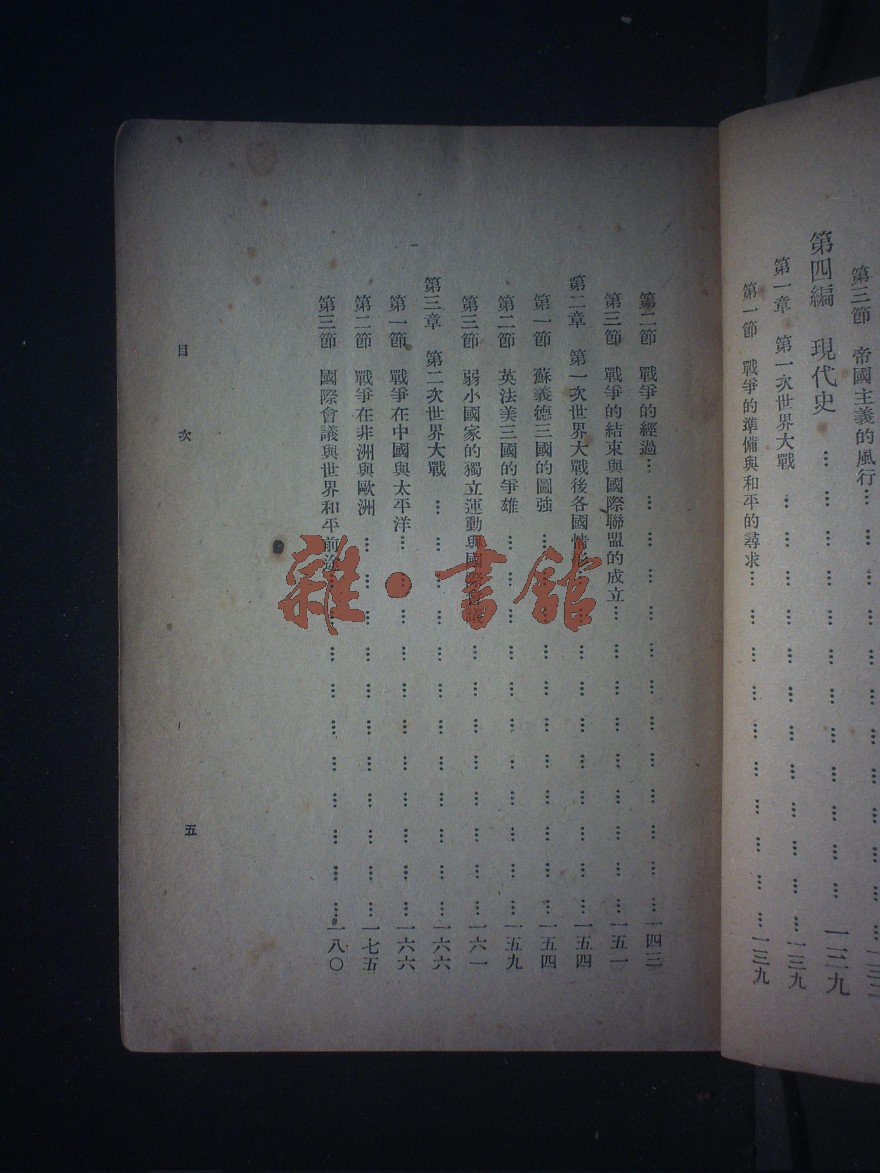 第三節 帝國主義的風行……一三三
第四編 現代史……一三九
第一章 第一次世界大戰……一三九
第一節 戰爭的準備與和平的尋求……一三九
第二節 戰爭的經過……一四三
第三節 戰爭的結束與國際聯盟的成立……一五一
第二章 第一次世界大戰後各國情……一五四
第一節 蘇義德三國的圖強……一五四
第二節 英法美三國的爭雄……一五九
第三節 弱小國家的獨立運動與國……一六一
第三章 第二次世界大戰……一六六
第一節 戰爭在中國與太平洋……一六六
第二節 戰爭在非洲與歐洲……一七五
第三節 國際會議與世界和平前途……一八〇
目次
五
雜·書館